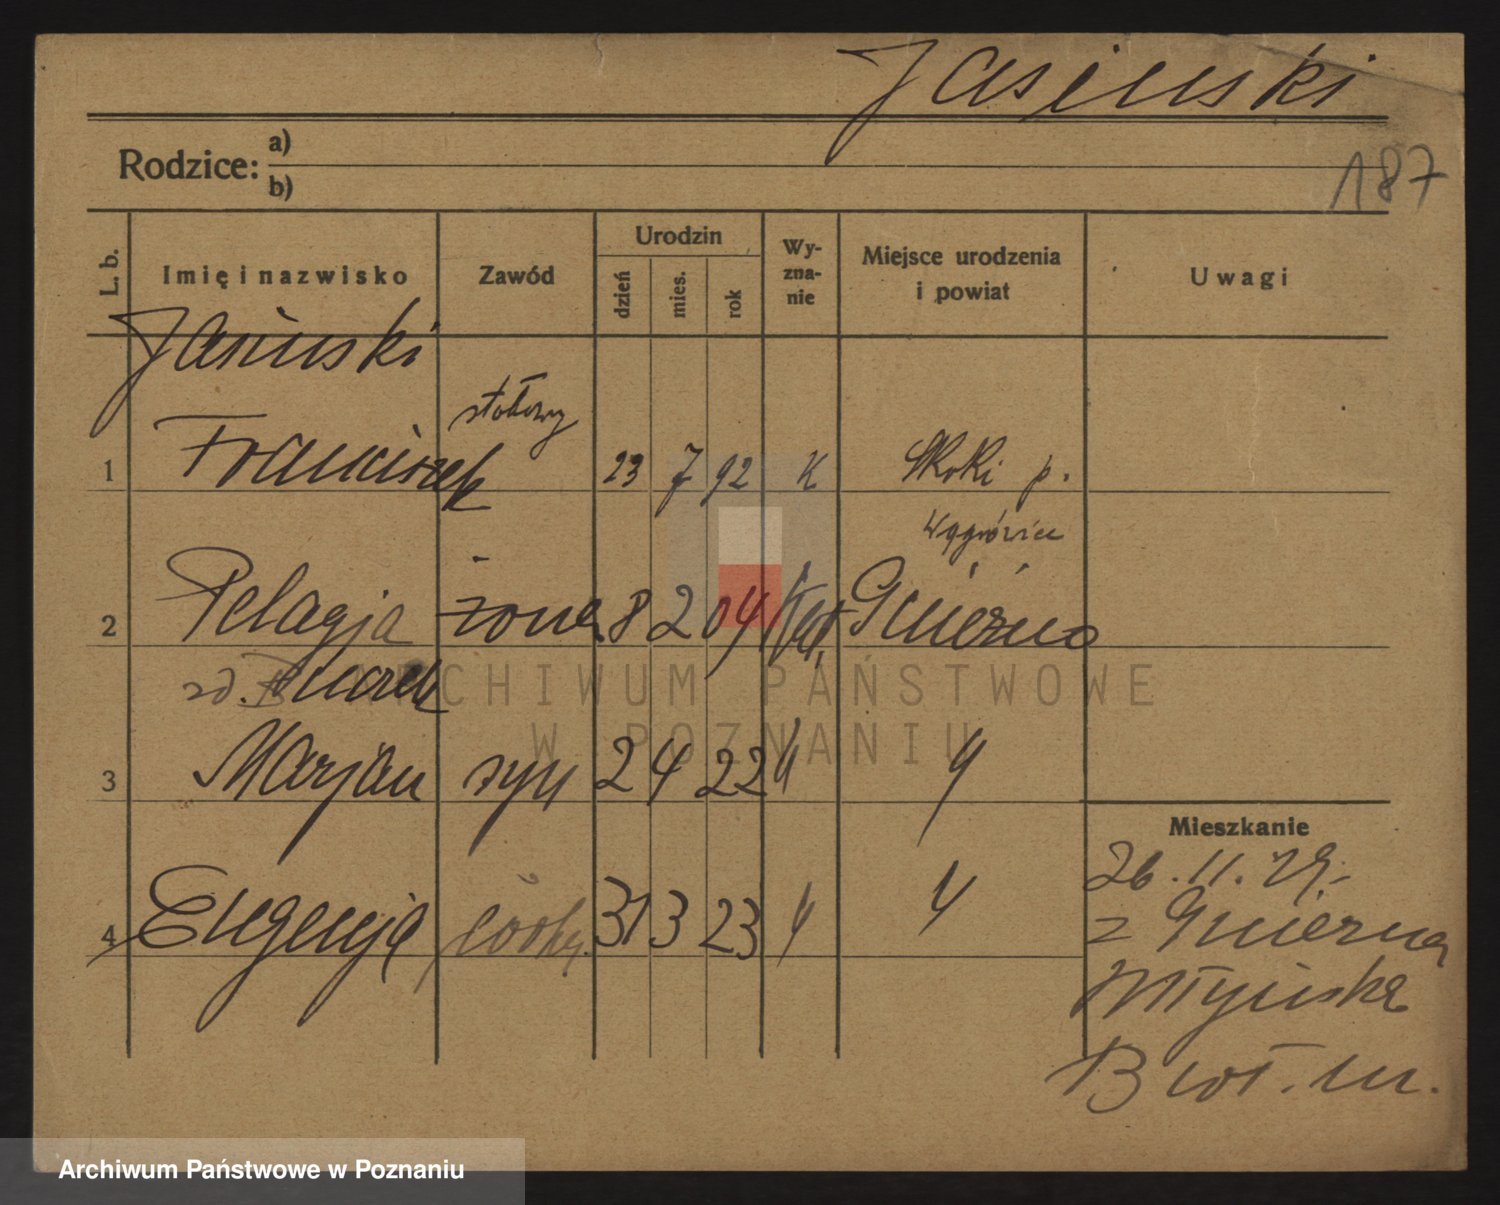 Jasinski
187
Rodzice: a)
b)
L. b. Imię i nazwisko Zawód Urodzin dzień mies. rok Wyznanie Miejsce urodzenia i powiat Uwagi
Jasinski
1 Franciszek stołowy 23 7 92 K Skoki p.
Wągrówiec
2 Pelagja żona 8 2 04 Kat. Gniezno
zd.
3 Marjan syn 2 4 22 " "
4 Eugenja córka 31 3 23 " "
Mieszkanie
26.11.29.
z Gniezna
Młyńska
ARCHIWUM PAŃSTWOWE
W POZNANIU
Archiwum Państwowe w Poznaniu